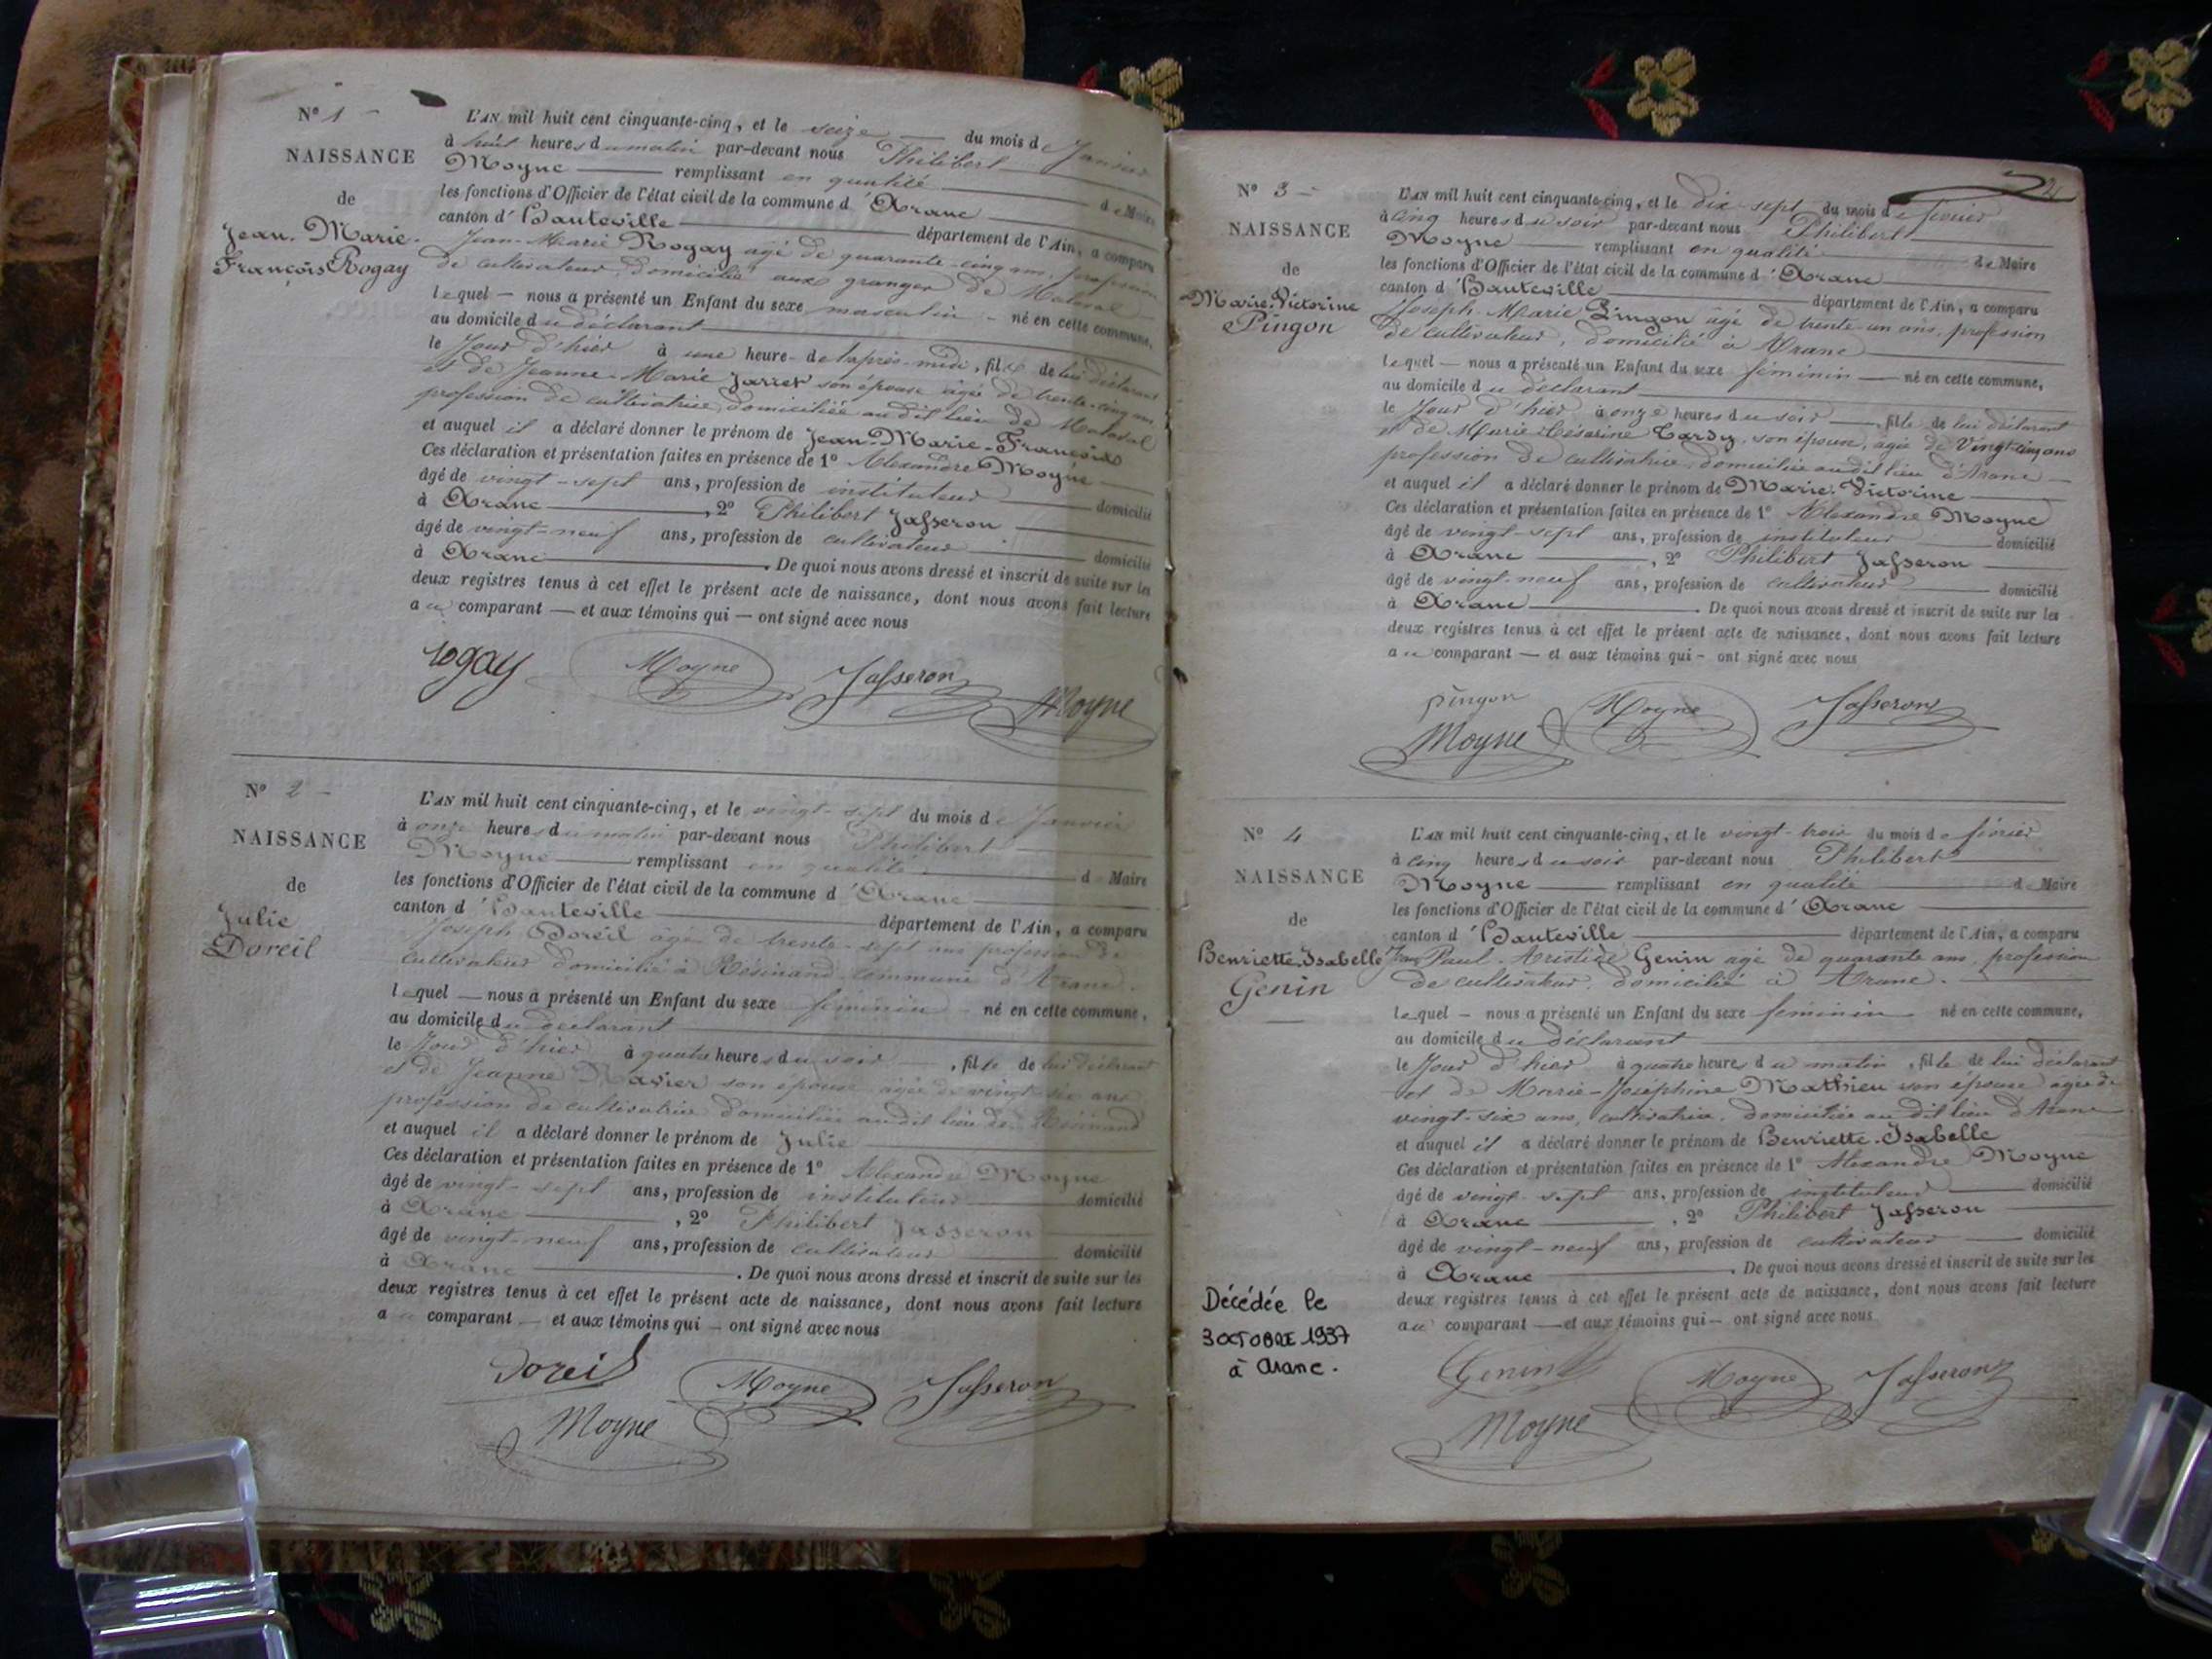 Nº 1 -
NAISSANCE
de
Jean-Marie-
François Rogay
L'AN mil huit cent cinquante-cinq, et le seize du mois de Janvier
à huit heures du matin par-devant nous Philibert
Moyne remplissant en qualité de Maire
les fonctions d'Officier de l'état civil de la commune d'Aranc
canton d'Hauteville département de l'Ain, a comparu
Jean-Marie Rogay agé de quarante-cinq ans, profession
de cultivateur, domicilié aux granges de Malaval
lequel — nous a présenté un Enfant du sexe masculin - né en cette commune,
au domicile du déclarant
le Jour d'hier à une heure de l'après-midi, fils de lui déclarant
et de Jeanne-Marie Jarret son épouse agée de trente-cinq ans,
profession de cultivatrice, domiciliée au dit lieu de Malaval
et auquel il a déclaré donner le prénom de Jean-Marie-François
Ces déclaration et présentation faites en présence de 1º Alexandre Moyne
âgé de vingt-sept ans, profession de instituteur domicilié
à Aranc, 2º Philibert Jasseron
âgé de vingt-neuf ans, profession de cultivateur domicilié
à Aranc. De quoi nous avons dressé et inscrit de suite sur les
deux registres tenus à cet effet le présent acte de naissance, dont nous avons fait lecture
au comparant — et aux témoins qui — ont signé avec nous
rogay Moyne Jasseron
Moyne
Nº 2 -
NAISSANCE
de
Julie
Doreil
L'AN mil huit cent cinquante-cinq, et le vingt-sept du mois de Janvier
à onze heures du matin par-devant nous Philibert
Moyne remplissant en qualité de Maire
les fonctions d'Officier de l'état civil de la commune d'Aranc
canton d'Hauteville département de l'Ain, a comparu
Joseph Doreil âgé de trente-sept ans profession de
cultivateur domicilié à Résinand commune d'Aranc.
lequel — nous a présenté un Enfant du sexe féminin - né en cette commune,
au domicile du déclarant
le Jour d'hier à quatre heures du soir, fille de lui déclarant
et de Jeanne son épouse agée de vingt-six ans
profession de cultivatrice domiciliée audit lieu de Résinand
et auquel il a déclaré donner le prénom de Julie
Ces déclaration et présentation faites en présence de 1º Alexandre Moyne
âgé de vingt-sept ans, profession de instituteur domicilié
à Aranc, 2º Philibert Jasseron
âgé de vingt-neuf ans, profession de cultivateur domicilié
à Aranc. De quoi nous avons dressé et inscrit de suite sur les
deux registres tenus à cet effet le présent acte de naissance, dont nous avons fait lecture
au comparant — et aux témoins qui — ont signé avec nous
Doreil Moyne Jasseron
Moyne
2
Nº 3 -
NAISSANCE
de
Marie-Victorine
Pingon
L'AN mil huit cent cinquante-cinq, et le dix-sept du mois de février
à cinq heures du soir par-devant nous Philibert
Moyne remplissant en qualité de Maire
les fonctions d'Officier de l'état civil de la commune d'Aranc
canton d'Hauteville département de l'Ain, a comparu
Joseph-Marie Pingon âgé de trente-un ans, profession
de cultivateur, domicilié à Aranc
lequel — nous a présenté un Enfant du sexe féminin — né en cette commune,
au domicile du déclarant
le Jour d'hier à onze heures du soir, fille de lui déclarant
et de Marie Césarine Tardy, son épouse, agée de Vingt-cinq ans
profession de cultivatrice, domiciliée audit lieu d'Aranc
et auquel il a déclaré donner le prénom de Marie-Victorine
Ces déclaration et présentation faites en présence de 1º Alexandre Moyne
âgé de vingt-sept ans, profession de instituteur domicilié
à Aranc, 2º Philibert Jasseron
âgé de vingt-neuf ans, profession de cultivateur domicilié
à Aranc. De quoi nous avons dressé et inscrit de suite sur les
deux registres tenus à cet effet le présent acte de naissance, dont nous avons fait lecture
au comparant — et aux témoins qui - ont signé avec nous
pingon Moyne Jasseron
Moyne
Nº 4
NAISSANCE
de
Henriette-Isabelle
Genin
L'AN mil huit cent cinquante-cinq, et le vingt-trois du mois de février
à cinq heures du soir par-devant nous Philibert
Moyne remplissant en qualité de Maire
les fonctions d'Officier de l'état civil de la commune d'Aranc
canton d'Hauteville département de l'Ain, a comparu
Paul-Aristide Genin agé de quarante ans, profession
de cultivateur, domicilié à Aranc.
lequel — nous a présenté un Enfant du sexe féminin né en cette commune,
au domicile du déclarant
le Jour d'hier à quatre heures du matin, fille de lui déclarant
et de Marie-Joséphine Mathieu son épouse agée de
vingt-six ans, cultivatrice, domiciliée au dit lieu d'Aranc
et auquel il a déclaré donner le prénom de Henriette-Isabelle
Ces déclaration et présentation faites en présence de 1º Alexandre Moyne
âgé de vingt-sept ans, profession de instituteur domicilié
à Aranc, 2º Philibert Jasseron
âgé de vingt-neuf ans, profession de cultivateur domicilié
à Aranc. De quoi nous avons dressé et inscrit de suite sur les
deux registres tenus à cet effet le présent acte de naissance, dont nous avons fait lecture
au comparant — et aux témoins qui — ont signé avec nous
Genin Moyne Jasseron
Moyne
Décédée le
3 OCTOBRE 1937
à Aranc.